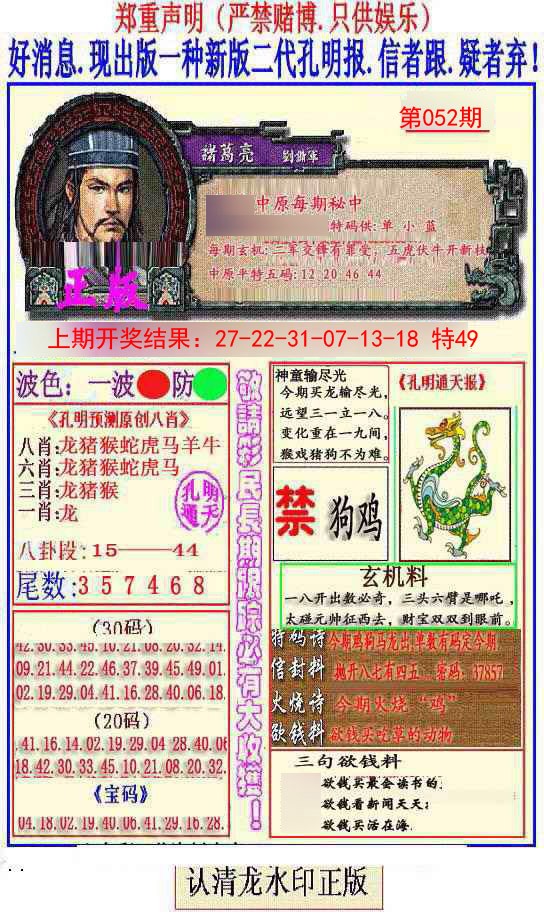 郑重声明（严禁赌博.只供娱乐）
好消息.现出版一种新版二代孔明报.信者跟.疑者弃!
第052期
諸葛亮
中原每期秘中
特码供:单 小 蓝
每期玄机:二军交锋有罪受；五虎伏牛开新枝
中原平特五码:12 20 46 44
正版
上期开奖结果：27-22-31-07-13-18 特49
波色：一波 防
《孔明预测原创八肖》
八肖:龙猪猴蛇虎马羊牛
六肖:龙猪猴蛇虎马
三肖:龙猪猴
一肖:龙
孔明
通天
八卦段:15——44
尾数:357468
(30码)
42.30.33.45.10.21.08.20.32.14
09.21.44.22.46.37.39.45.49.01
02.19.29.04.41.16.28.40.06.18
(20码)
41.16.14.02.19.29.04 28.40.06
18.42.30.33.45.10.21.08.20.32
《宝码》
04.18.02.19.40.06.41.29.16.28.
敬請彩民長期跟踪必有大收獲！
神童输尽光
今期买龙输尽光，
远望三一立一八。
变化重在一九间，
猴戏猪狗不为难。
《孔明通天报》
禁 狗鸡
玄机料
一八开出数必奇，三头六臂是哪吒，
太碰元帅征西去，财宝双双到眼前。
特码诗 今期鸡狗马龙出,单数有码定今期
信封料 抛开八七有四五...密码：37857
火烧诗 今期火烧“鸡”
欲钱料 欲钱买吃草的动物
三句欲钱料
欲钱买最会读书的.
欲钱看新闻天天；
欲钱买活在海.
认清龙水印正版